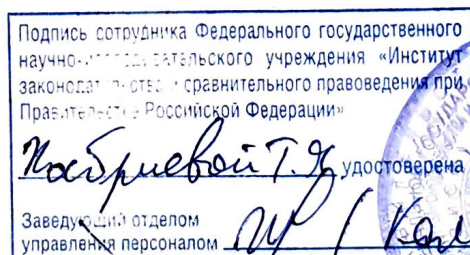 Подпись сотрудника Федерального государственного
научно-исследовательского учреждения «Институт
законодательства и сравнительного правоведения при
Правительстве Российской Федерации»
Хабриевой Т.Я. удостоверена
Заведующий отделом
управления персоналом